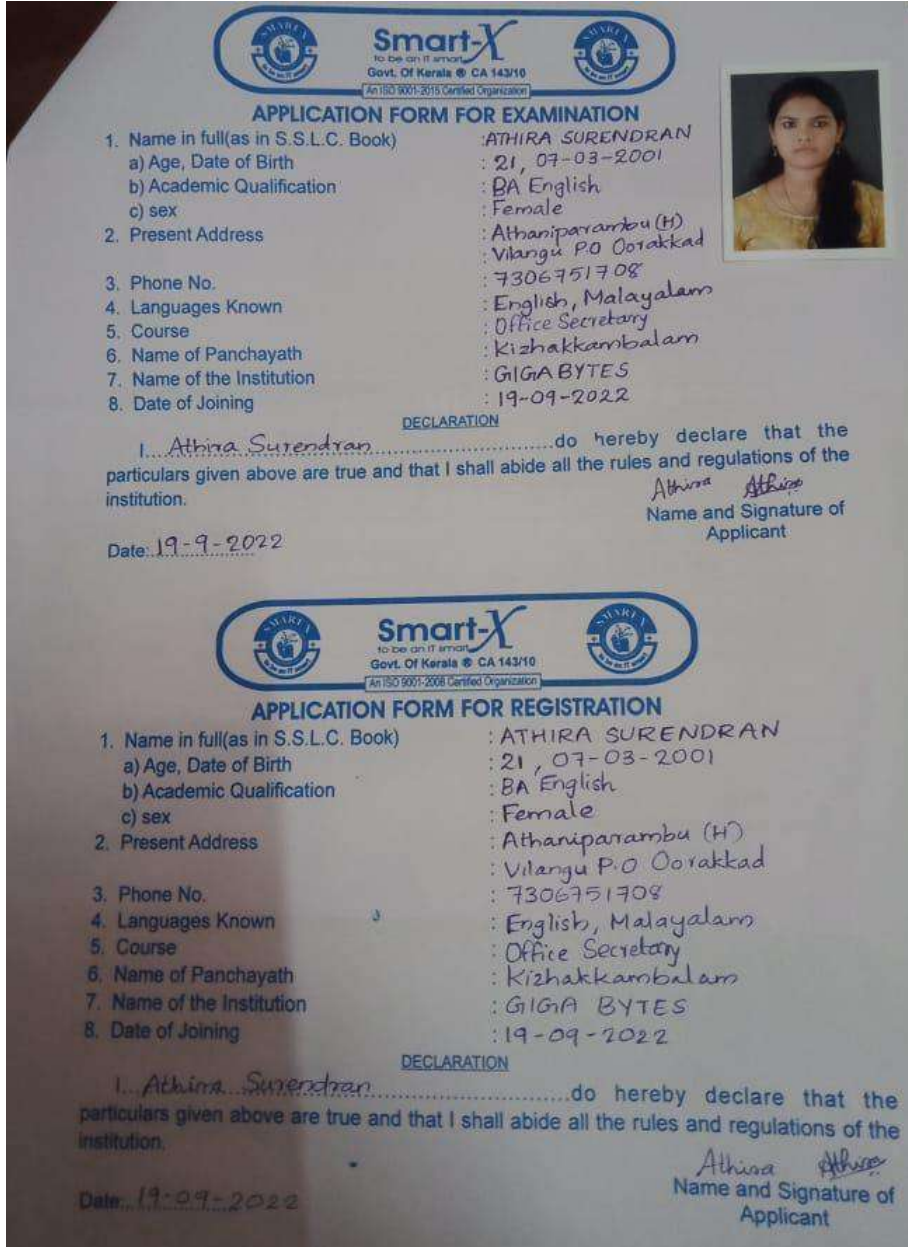 SMARTX
to be an IT smart
Smart-X
to be an IT smart
Govt. Of Kerala ® CA 143/10
An ISO 9001-2015 Certified Organization
SMARTX
to be an IT smart
APPLICATION FORM FOR EXAMINATION
1. Name in full(as in S.S.L.C. Book) :ATHIRA SURENDRAN
a) Age, Date of Birth : 21, 07-03-2001
b) Academic Qualification : BA English
c) sex : Female
2. Present Address : Athaniparambu (H)
: Vilangu P.O Oorakkad
3. Phone No. : 7306751708
4. Languages Known : English, Malayalam
5. Course : Office Secretary
6. Name of Panchayath : Kizhakkambalam
7. Name of the Institution : GIGABYTES
8. Date of Joining : 19-09-2022
DECLARATION
I... Athira Surendran ........................do hereby declare that the
particulars given above are true and that I shall abide all the rules and regulations of the
institution.
Athira Athira
Name and Signature of
Applicant
Date: 19-9-2022
SMARTX
to be an IT smart
Smart-X
to be an IT smart
Govt. Of Kerala ® CA 143/10
An ISO 9001-2008 Certified Organization
SMARTX
to be an IT smart
APPLICATION FORM FOR REGISTRATION
1. Name in full(as in S.S.L.C. Book) : ATHIRA SURENDRAN
a) Age, Date of Birth : 21, 07-03-2001
b) Academic Qualification : BA English
c) sex : Female
2. Present Address : Athaniparambu (H)
: Vilangu P.O Oorakkad
3. Phone No. : 7306751708
4. Languages Known : English, Malayalam
5. Course : Office Secretary
6. Name of Panchayath : Kizhakkambalam
7. Name of the Institution : GIGA BYTES
8. Date of Joining : 19-09-2022
DECLARATION
I... Athira Surendran ........................do hereby declare that the
particulars given above are true and that I shall abide all the rules and regulations of the
institution.
Athira Athira
Name and Signature of
Applicant
Date: 19-09-2022